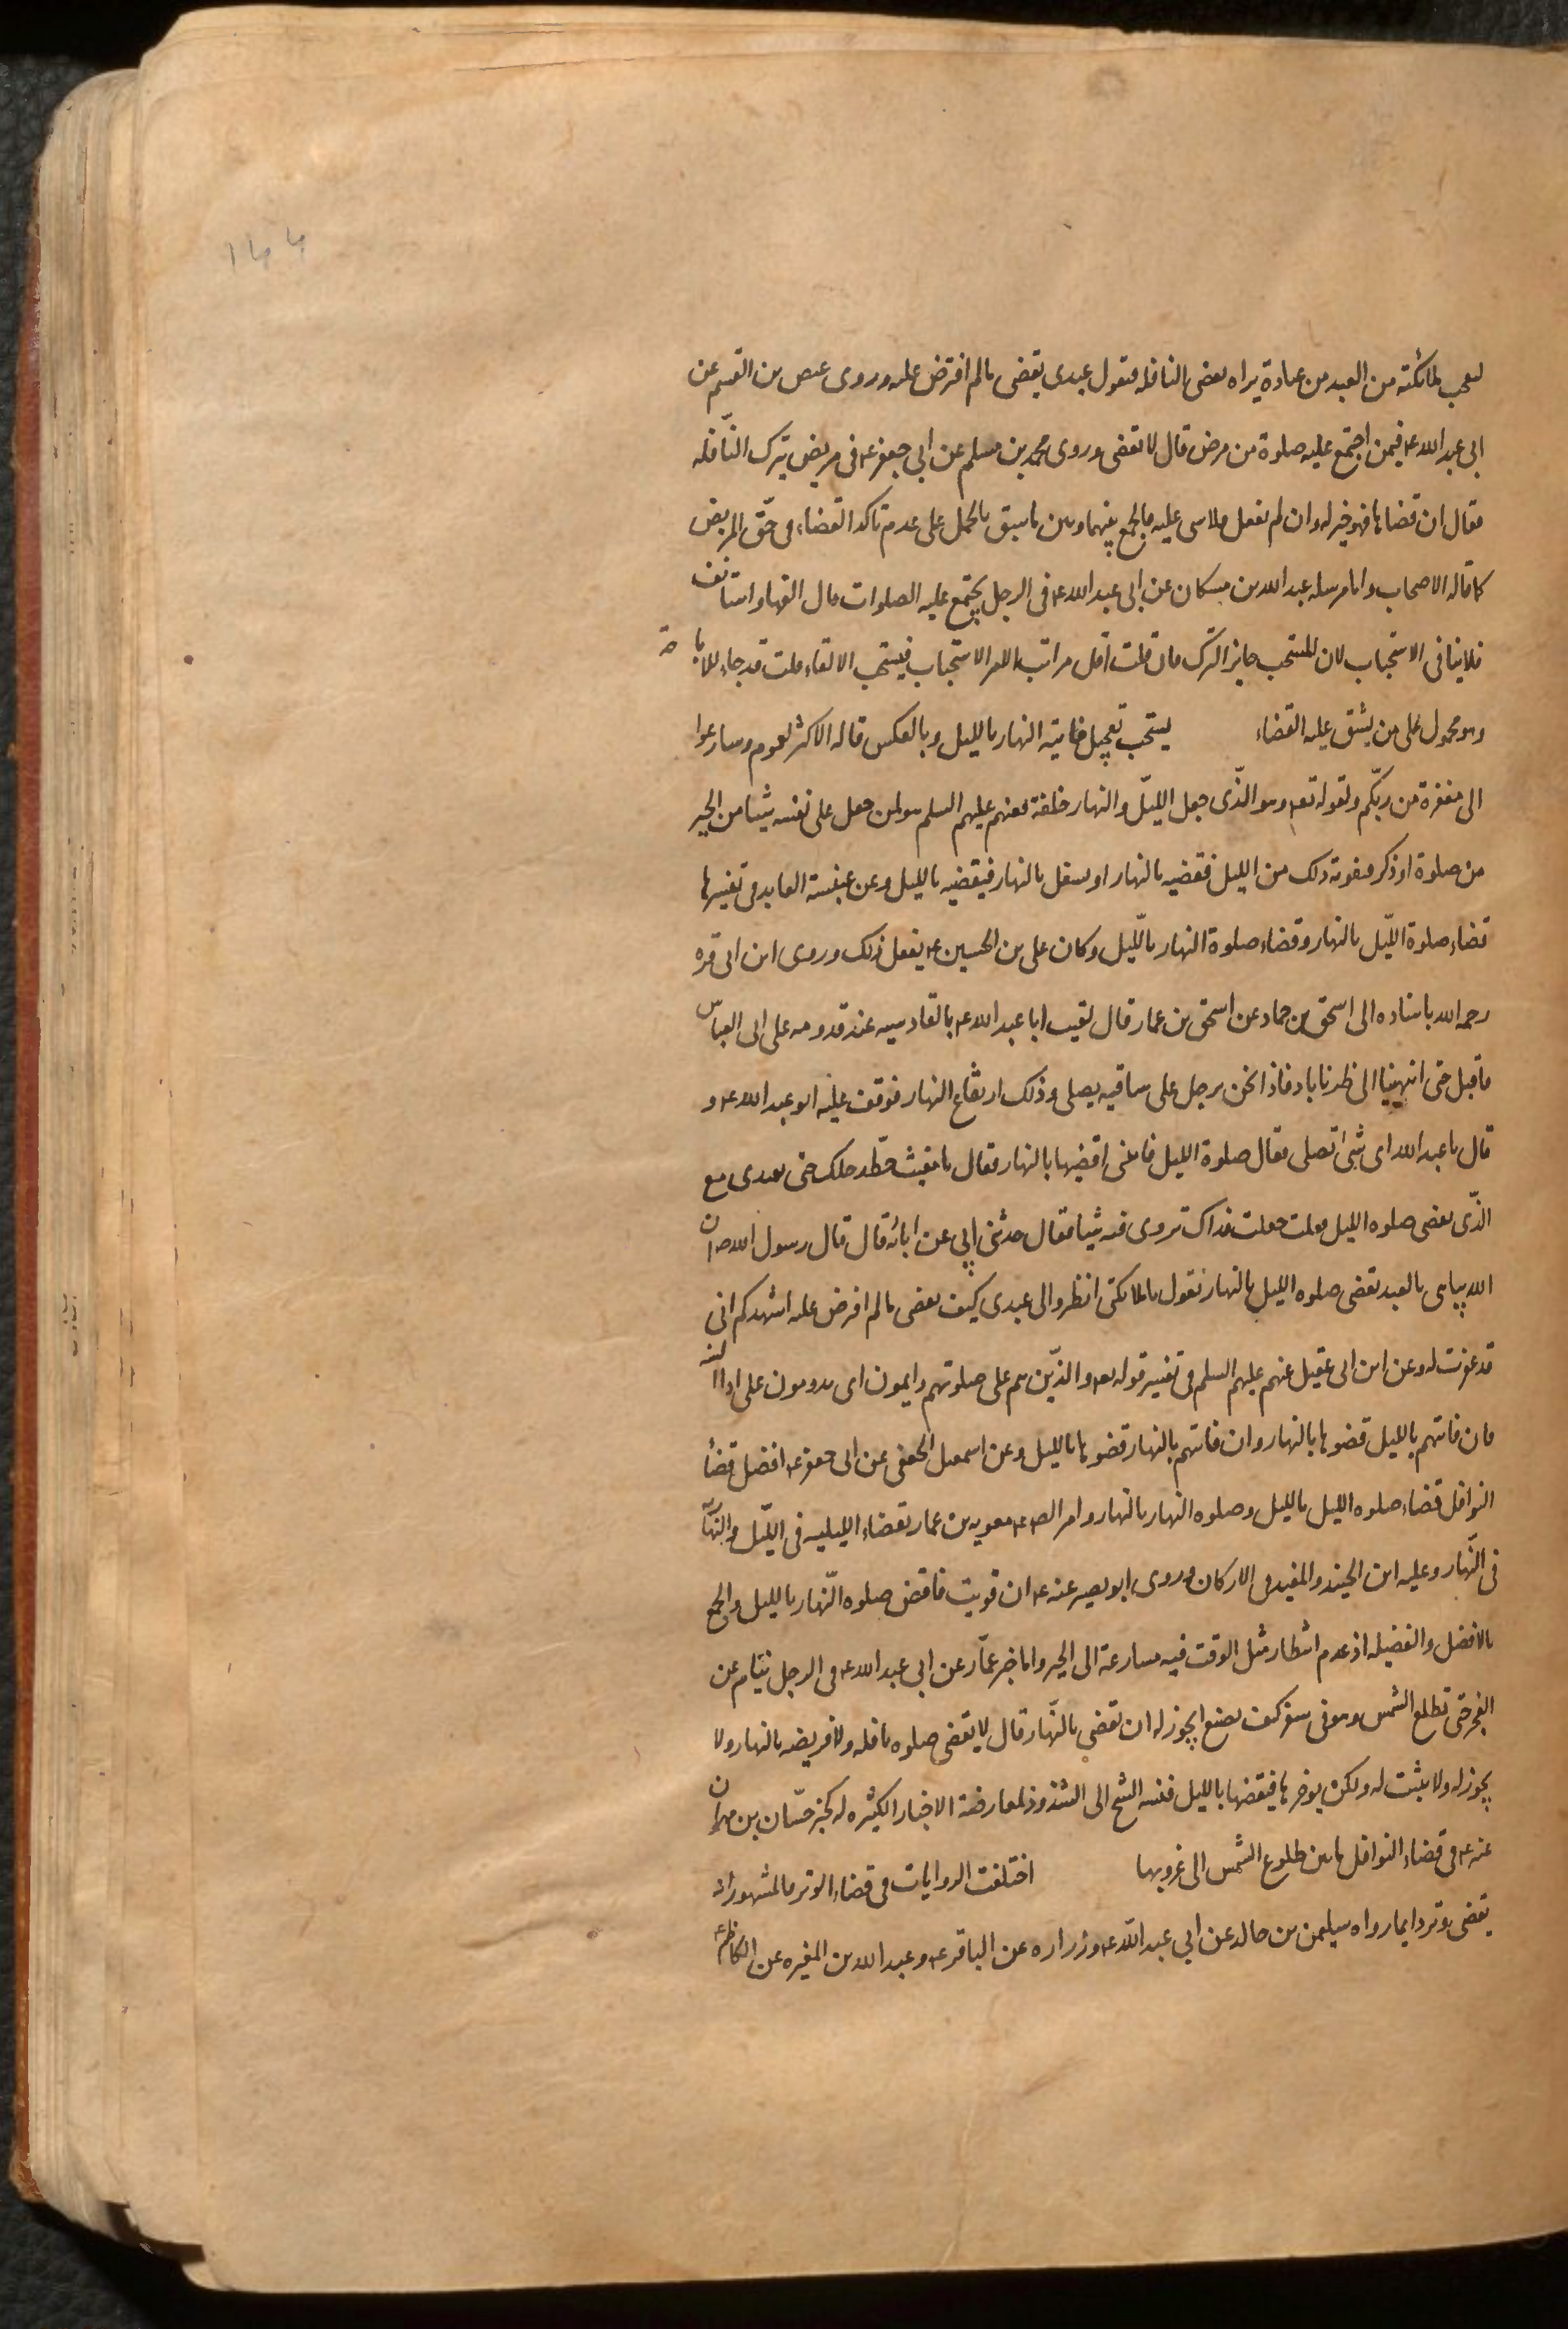 ۱۴۴
لىعجب ملائكته من العبد من عباده يراه يقضى النافله فيقول عبدى يقضى مالم افترض عليه وروى عيص بن القسم عن
ابى عبد الله ع فيمن اجتمع عليه صلوة من مرض قال لا تقضى وروى محمد بن مسلم عن ابى جعفر ع فى مريض يترك النّافله
فقال ان قضاها فهو خير له وان لم يفعل فلا شى عليه فالجمع بينهما وبين ما سبق بالحمل على عدم تاكد القضاء فى حقّ المريض
كما قاله الاصحاب واما مرسله عبد الله بن مسكان عن ابى عبد الله ع فى الرجل يجتمع عليه الصلوات قال القها واستانف
فلا ينافى الاستحباب لان المستحب جايز الترك فان قلت اقل مراتب الامر الاستحباب فيستحب الالقاء قلت قد جاء للاباحة
وهو محمول على من يشق عليه القضاء يستحب تعجيل فايتة النهار بالليل وبالعكس قاله الاكثر لعموم وسارعوا
الى مغفرة من ربّكم ولقوله تع وهو الذّى جعل الليل والنهار خلفة فعنهم عليهم السلم هو لمن جعل على نفسه شيئا من الخير
من صلوة او ذكر فيفوته ذلك من الليل فيقضيه بالنهار او يشغل بالنهار فيقضيه بالليل وعن عنبسة العابد فى تفسيرها
قضاء صلوة اللّيل بالنهار وقضاء صلوة النهار باللّيل وكان على بن الحسين ع يفعل ذلك وروى ابن ابى قره
رحمه الله باسناده الى اسحق بن حماد عن اسحق بن عمار قال لقيت ابا عبد الله ع بالقادسيه عند قدومه على ابى العباس
فاقبل حتى انتهينا الى طرناباد فاذا نحن برجل على ساقيه يصلى وذلك ارتفاع النهار فوقف عليه ابو عبد الله ع و
قال يا عبد الله اى شئ تصلى فقال صلوة الليل فاتتنى اقضيها بالنهار فقال يا معتب حطّ رحلك حتى نتغدى مع
الذّى يقضى صلوه الليل فقلت جعلت فداك تروى فيه شيئا فقال حدثنى ابى عن ابائه قال قال رسول الله ص ان
الله يباهى بالعبد يقضى صلوه الليل بالنهار يقول يا ملائكتى انظروا الى عبدى كيف يقضى مالم افرض عليه اشهدكم انى
قد غفرت له وعن ابن ابى عقيل عنهم عليهم السلم فى تفسير قوله تع والذّين هم على صلوتهم دايمون اى يدومون على اداء السنه
فان فاتتهم بالليل قضوها بالنهار وان فاتتهم بالنهار قضوها بالليل وعن اسمعيل الجعفى عن ابى جعفر ع افضل قضاء
النوافل قضاء صلوه الليل بالليل وصلوه النهار بالنهار وامر الص ع معويه بن عمار بقضاء الليليه فى اللّيل والنهاريّه
فى النّهار وعليه ابن الجنيد والمفيد فى الاركان وروى ابو بصير عنه ع ان قويت فاقض صلوه النّهار بالليل والجمع
بالافضل والفضيله اذ عدم انتظار مثل الوقت فيه مسارعة الى الخير واما خبر عمّار عن ابى عبد الله ع فى الرجل ينام عن
الفجر حتى تطلع الشمس وهو فى سفر كيف يصنع ايجوز له ان يقضى بالنّهار قال لا يقضى صلوه نافله ولا فريضه بالنهار ولا
يجوز له ولا يثبت له ولكن يوخرها فيقضها بالليل فنسبه الشيخ الى الشذوذ لمعارضة الاخبار الكثيره له كخبر حسّان بن مهران
عنه ع فى قضاء النوافل مابين طلوع الشمس الى غروبها اختلفت الروايات فى قضاء الوتر فالمشهور انه
يقضى بوتر دايما رواه سليمن بن خالد عن ابى عبد الله ع وزراره عن الباقر ع وعبد الله بن المغيره عن الكاظم ع